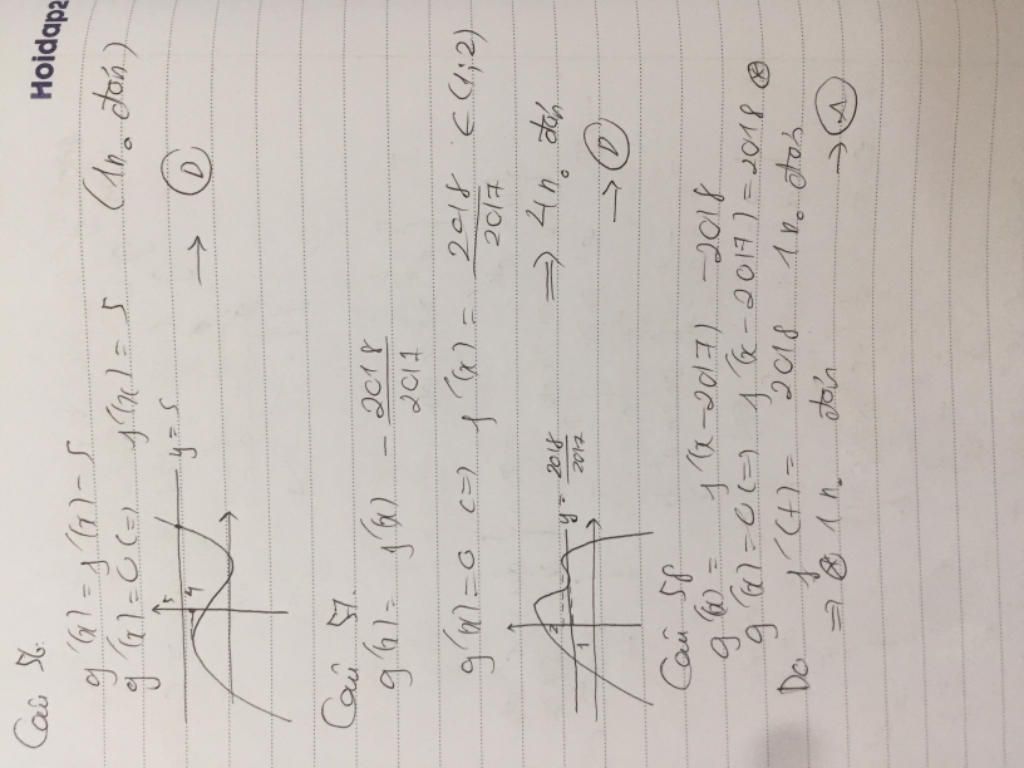 Hoidap2
Câu 56.
g'(x) = f'(x) - 5
g'(x) = 0 (=) f'(x) = 5 (1 n₀ đơn)
5
4
y = 5
→ D
Câu 57.
g'(x) = f'(x) - 2018/2017
g'(x) = 0 (=) f'(x) = 2018/2017 ∈ (1; 2)
2
1
y = 2018/2017
⇒ 4 n₀ đơn
→ D
Câu 58
g'(x) = f'(x - 2017) - 2018
g'(x) = 0 (=) f'(x - 2017) = 2018 ⊛
Do f'(t) = 2018 1 n₀ đơn
⇒ ⊛ 1 n₀ đơn → A